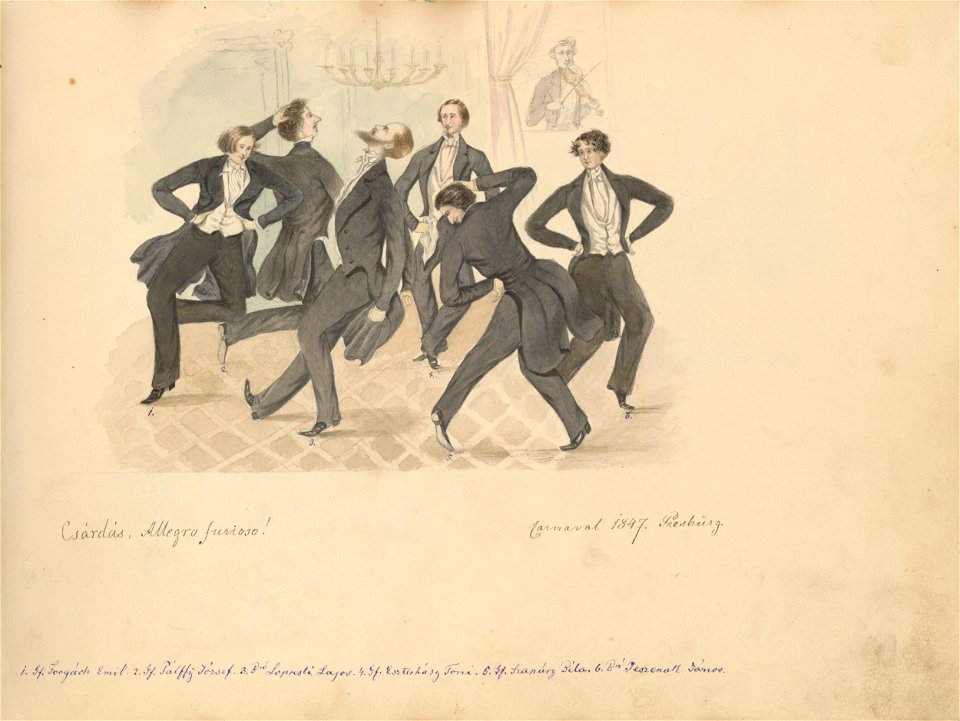 1.
2.
3.
4.
5.
6.
Csárdás, Allegro furioso!
Carnaval 1847. Presburg.
1. Gf. Forgách Emil. 2. Gf. Pálffÿ József. 3. Bró Lopresti Lajos. 4. Gf. Eszterházy Toni. 5. Gf. Szapáry Béla. 6. Bró Jeszenak János.